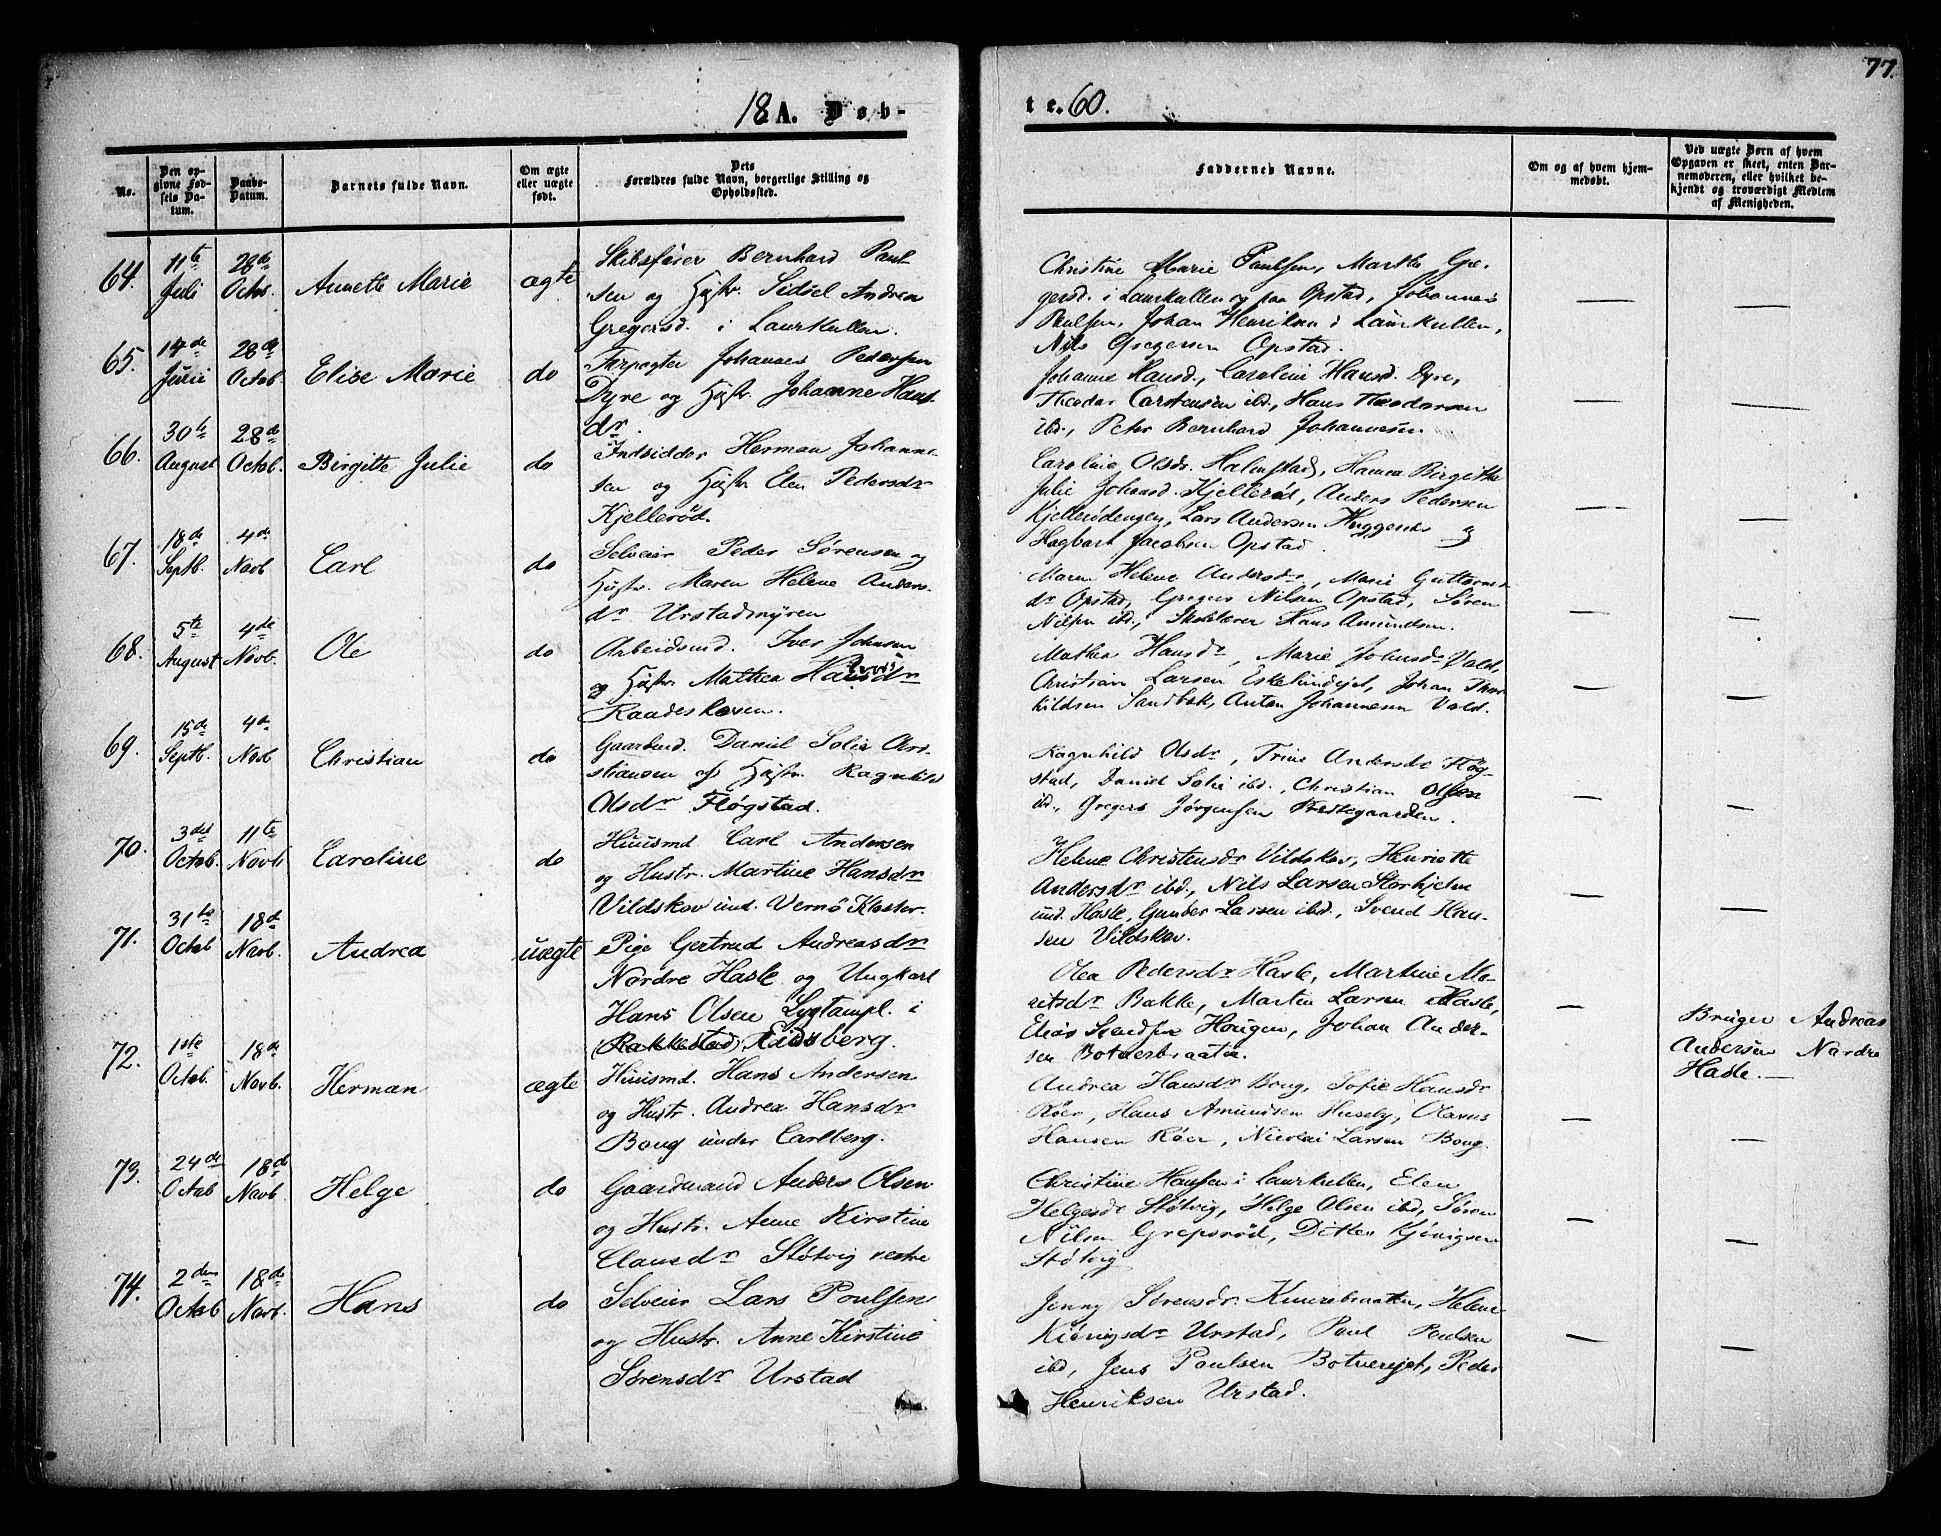 77.
18 A. Døb-
te. 60.
No.
Den opgivne Fødsels Datum.
Daabs-Datum.
Barnets fulde Navn.
Om ægte eller uægte født.
Dets Forældres fulde Navn, borgerlige Stilling og Opholdssted.
Faddernes Navne.
Om og af hvem hjemmedøbt.
Ved uægte Børn af hvem Opgaven er skeet, enten Barnemoderen, eller hvilket bekjendt og troværdigt Medlem af Menigheden.
64. 11te Juli 28de Octbr. Annette Marie ægte
Skibsfører Bernhard Paul-
sen og Hustr. Sidsel Andrea
Gregersd. i Laurkullen.
Christine Marie Paulsen, Marthe Gre-
gersd. i Laurkullen og paa Opstad, Johannes
Paulsen, Johan Henriksen i Laurkullen,
Nils Gregersen Opstad.
65. 14de Julie 28de Octob. Elise Marie do
Forpagter Johannes Pedersen
Dyre og Hustr. Johanne Hans-
dr.
Johanne Hansd., Caroline Hansd. Dyre,
Theodor Carstensen ibd., Hans Theodorsen
ibd., Peter Bernhard Johannesen.
66. 30te August 28de Octob. Birgitte Julie do
Indsidder Herman Johanne-
sen og Hustr Elen Pedersdr
Kjellerød.
Caroline Olsdr. Halmstad, Hanna Birgitte
Julie Johansd. Kjellerød, Anders Pedersen
Kjellerødengen, Lars Andersen Huggenes
Hagbart Jacobsen Opstad.
67. 18de Septb. 4de Novb Carl do
Selveier Peder Sørensen og
Hustr. Maren Helene Anders-
dr Urstadmyren
Maren Helene Andersdr, Marie Guttorms-
dr Opstad, Gregers Nilsen Opstad, Søren
Nilsen ibd., Skolelærer Hans Amundsen.
68. 5te August 4de Novb. Ole do
Arbeidsmd. Iver Johnsen
og Hustr Mathea Hansdr
Raadeskoven.
Mathea Hansdr, Marie Johnsdr Vold,
Christian Larsen Eskelundejet, Johan Thor-
kildsen Sandbæk, Anton Johannesen Vold.
69. 15de Septb. 4de Novb Christian do
Gaardmd. Daniel Solie Chri-
stiansen og Hustr. Ragnhild
Olsdr Fløgstad.
Ragnhild Olsdr, Trine Andersdr Fløg-
stad, Daniel Solie ibd., Christian Olsen
ibd., Gregers Jørgensen Præstegaarden.
70. 3die Octob. 11te Novb Caroline do
Huusmd Carl Andersen
og Hustr. Martine Hansdr
Vildskov und. Vernø Kloster.
Helene Christensdr Vildskov, Henriette
Andersdr ibd., Nils Larsen Storhjelm
und. Hasle, Gunder Larsen ibd., Svend Han-
sen Vildskov.
71. 31te Octob 18de Novb. Andrea uægte
Pige Gertrud Andreasdr
Nordre Hasle og Ungkarl
Hans Olsen Lystampl. i
(Rakkestad) Eidsberg.
Olea Pedersdr Hasle, Martine Mo-
ritsdr Bakke, Martin Larsen Hasle,
Elias Svendsen Hougen, Johan Ander-
sen Botnerbraaten.
Bruger Andreas
Andersen Nordre
Hasle.
72. 1ste Octob. 18de Novb. Herman ægte
Huusmd. Hans Andersen
og Hustr. Andrea Hansdr
Boug under Carlberg.
Andrea Hansdr Boug, Sofie Hansdr
Röer, Hans Amundsen Huseby, Olavus
Hansen Röer, Nicolai Larsen Boug.
73. 24de Octob 18de Novb. Helge do
Gaardmand Anders Olsen
og Hustr. Anne Kirstine
Clausdr Støtvig vestre
Christine Hansen i Laurkullen, Elen
Helgesdr Støtvig, Helge Olsen ibd, Søren
Nilsen Grepsrød, Ditlev Kjønigsen
Støtvig
74. 2den Octob 18de Novb. Hans do
Selveier Lars Poulsen
og Hustr. Anne Kirstine
Sørensdr Urstad
Jenny Sørensdr. Knurrebraaten, Helene
Kjønigsdr Urstad, Paul Poulsen
ibd, Jens Paulsen Botnerejet, Peder
Henriksen Urstad.